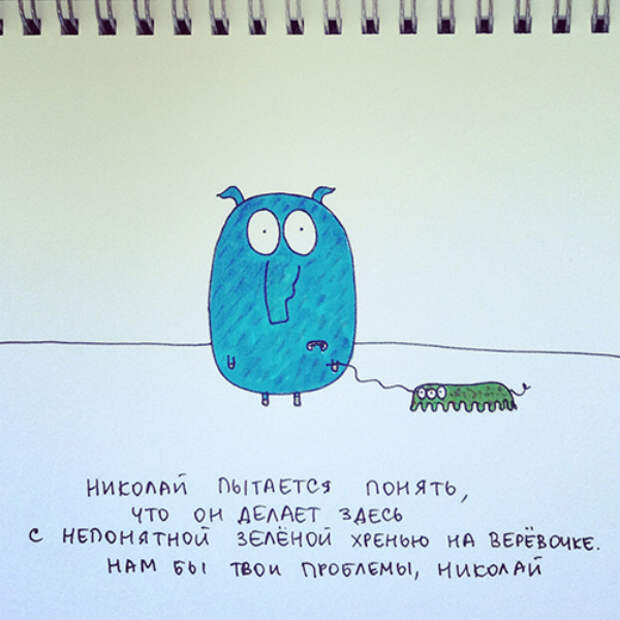 НИКОЛАЙ ПЫТАЕТСЯ ПОНЯТЬ,
ЧТО ОН ДЕЛАЕТ ЗДЕСЬ
С НЕПОНЯТНОЙ ЗЕЛЁНОЙ ХРЕНЬЮ НА ВЕРЁВОЧКЕ.
НАМ БЫ ТВОИ ПРОБЛЕМЫ, НИКОЛАЙ